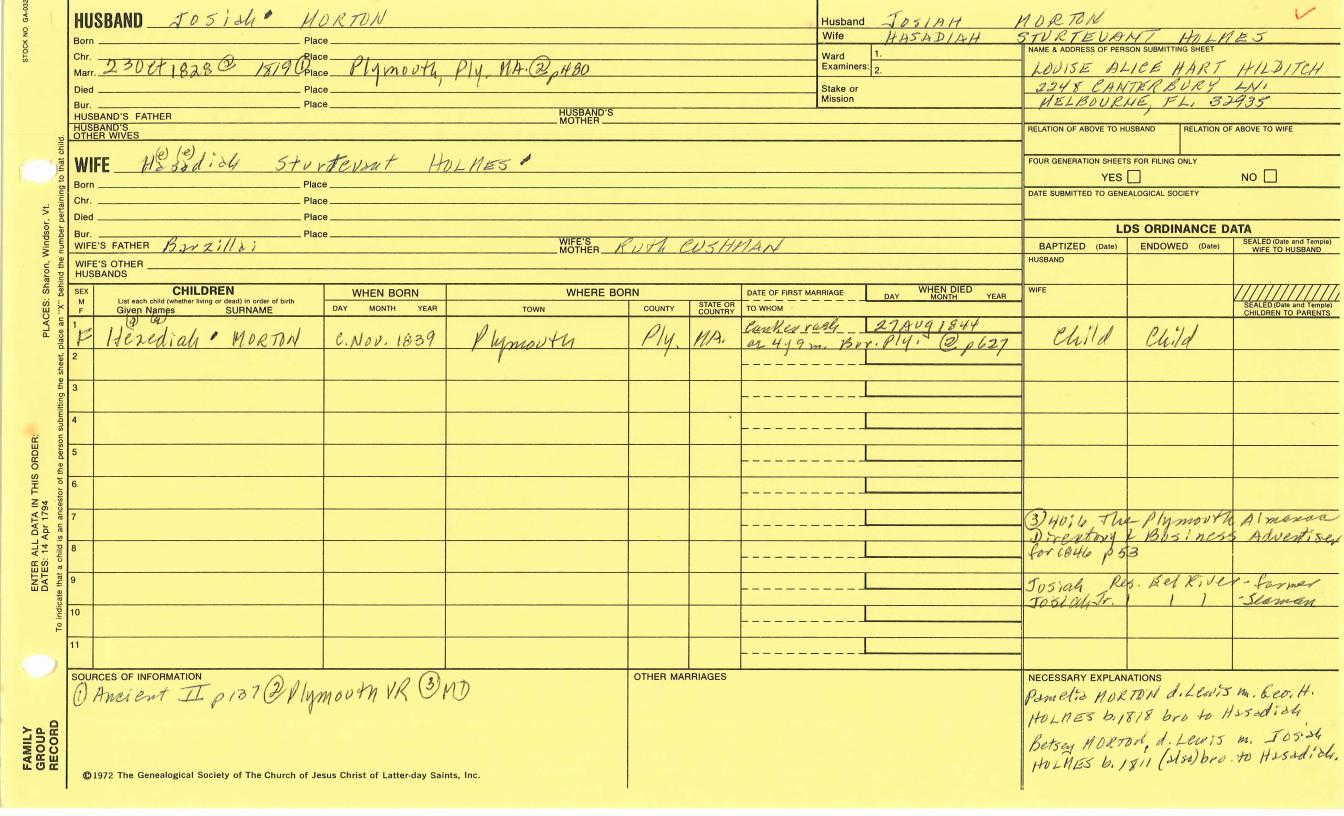 STOCK NO. GA-033
HUSBAND Josiah MORTON
Born Place
Chr. Place
Marr. 23 Oct 1828 ② 1819 ① Place Plymouth, Ply. MA. ② p480
Died Place
Bur. Place
HUSBAND'S FATHER HUSBAND'S MOTHER
HUSBAND'S OTHER WIVES
Husband JOSIAH MORTON
Wife HASADIAH STURTEVANT HOLMES
Ward Examiners: 1.
2.
Stake or Mission
NAME & ADDRESS OF PERSON SUBMITTING SHEET
LOUISE ALICE HART HILDITCH
2248 CANTERBURY LN.
MELBOURNE, FL. 32935
RELATION OF ABOVE TO HUSBAND RELATION OF ABOVE TO WIFE
FOUR GENERATION SHEETS FOR FILING ONLY
YES NO
DATE SUBMITTED TO GENEALOGICAL SOCIETY
WIFE Hasadiah Sturtevant HOLMES
(e) (e)
Born Place
Chr. Place
Died Place
Bur. Place
WIFE'S FATHER Barzillai WIFE'S MOTHER Ruth CUSHMAN
WIFE'S OTHER HUSBANDS
LDS ORDINANCE DATA
BAPTIZED (Date) ENDOWED (Date) SEALED (Date and Temple) WIFE TO HUSBAND
HUSBAND
WIFE
SEALED (Date and Temple) CHILDREN TO PARENTS
SEX M F
CHILDREN
List each child (whether living or dead) in order of birth
Given Names SURNAME
WHEN BORN
DAY MONTH YEAR
WHERE BORN
TOWN COUNTY STATE OR COUNTRY
DATE OF FIRST MARRIAGE
TO WHOM
WHEN DIED
DAY MONTH YEAR
1 F Hesediah MORTON c. Nov. 1839 Plymouth Ply. MA. Canker rash 27 AUG 1844 Child Child
4y 9m. Bur. Ply. ② p627
2
3
4
5
6
7
8
9
10
11
③ 40:6 The Plymouth Almanac
Directory & Business Advertiser
for 1846 p53
Josiah Res. Eel River - farmer
Josiah Jr. - Seaman
SOURCES OF INFORMATION
① Ancient II p187 ② Plymouth VR ③ MD
OTHER MARRIAGES
NECESSARY EXPLANATIONS
Pamelia MORTON d. Lewis m. Geo. H.
HOLMES b. 1818 bro to Hasadiah
Betsey MORTON, d. Lewis m. Josiah
HOLMES b. 1811 (also) bro. to Hasadiah.
©1972 The Genealogical Society of The Church of Jesus Christ of Latter-day Saints, Inc.
FAMILY GROUP RECORD
ENTER ALL DATA IN THIS ORDER:
DATES: 14 Apr 1794
PLACES: Sharon, Windsor, Vt.
To indicate that a child is an ancestor of the person submitting the sheet, place an "X" behind the number pertaining to that child.